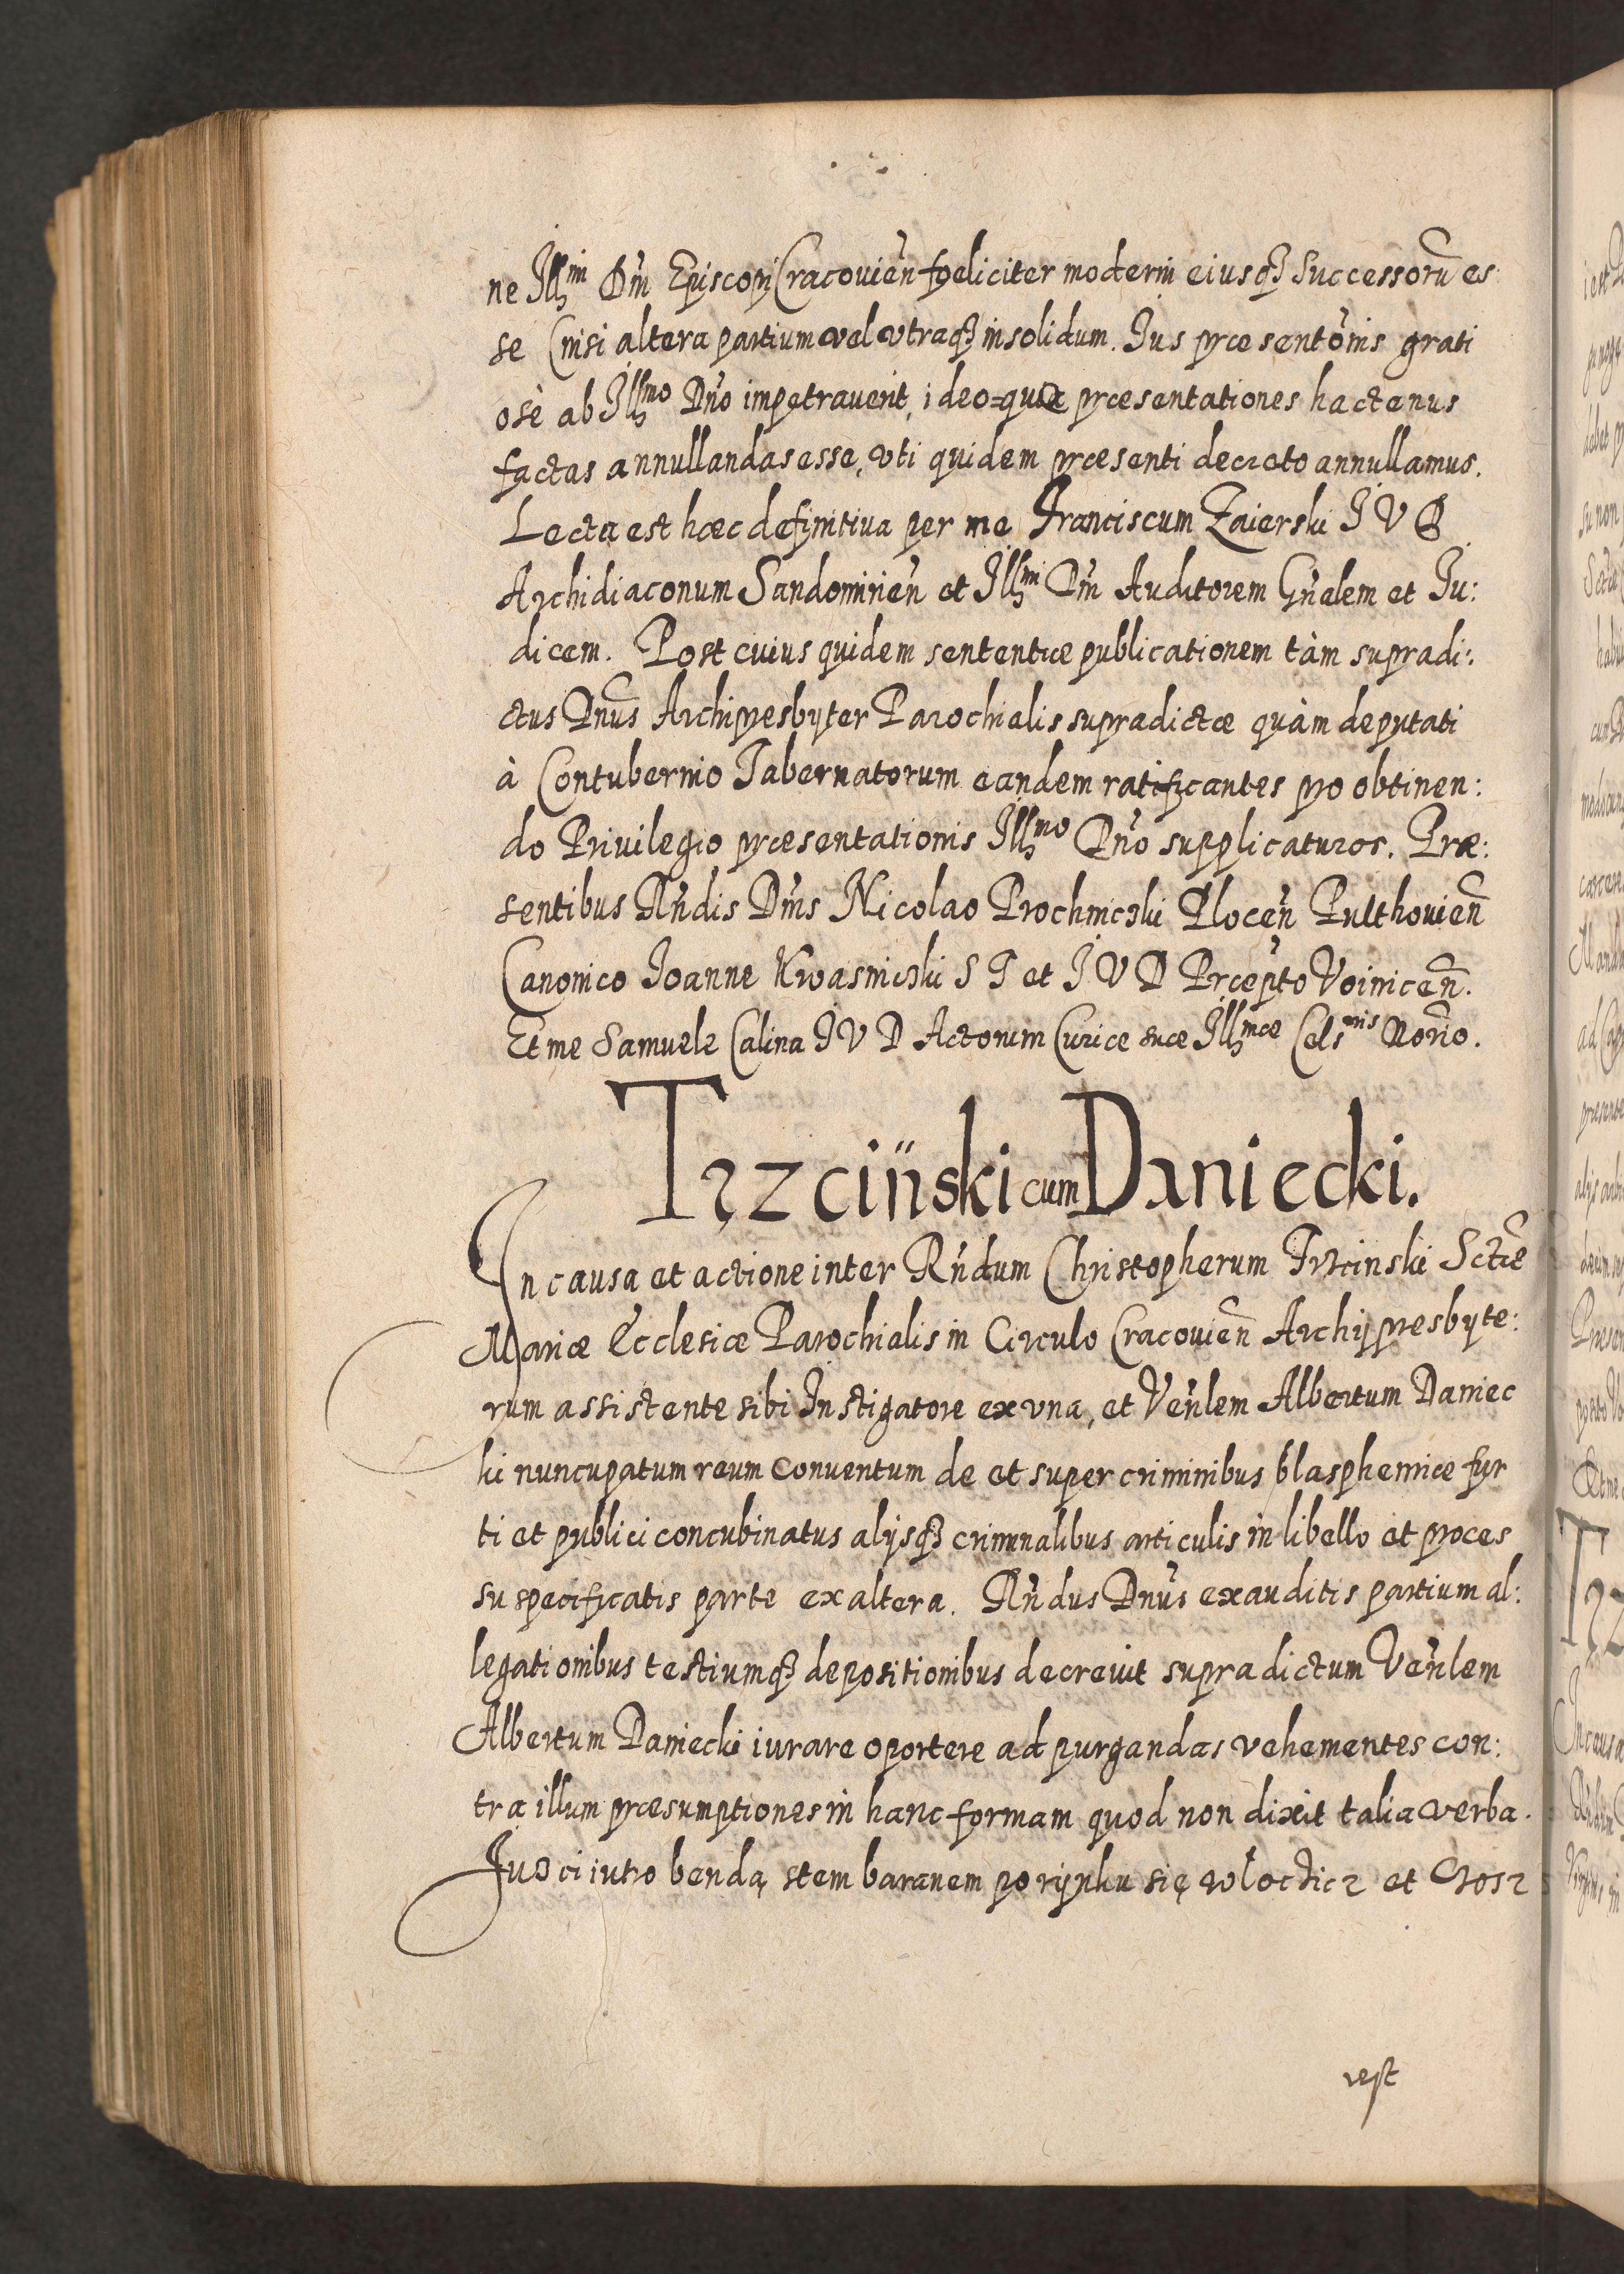 ne Illmi Dni Episcopi Cracovien̄ foeliciter moderni eiusq3 Successorū es
se (nisi altera partium vel utraq3 in solidum. Ius præsentōnis grati
osè ab Illmo Dn̄o impetrauerit, ideo=que præsentationes hactenus
factas annullandas esse, vti quidem præsenti decreto annullamus.
Lecta est hæc definitiua per me Franciscum Zaierski I V D
Archidiaconum Sandomirien̄ et Illmi Dni Auditorem Gn̄alem et Iu:
dicem. Post cuius quidem sententiæ publicationem tàm supradi:
ctus Dnūs Archipresbyter Parochialis supradictæ quàm deputati
à Contubernio Tabernatorum eandem ratificantes pro obtinen:
do Priuilegio præsentationis Illmo Dn̄o supplicaturos. Præ:
sentibus Rn̄dis Dnīs Nicolao Prochnicski Plocen̄ Pulthouien̄
Canonico Ioanne Kwasnicski S T et I V D Præpto Voinicen̄.
Et me Samuele Calina I V D Actorum Curiæ suæ Illmæ Celsnis Norio.
Trzciński cum Daniecki.
In causa et actione inter Rn̄dum Christopherum Trzcinski Sctæ
Mariæ Ecclesiæ Parochialis in Circulo Cracouien̄ Archipresbyte:
rum assistente sibi Instigatore ex vna, et Ven̄lem Albertum Daniec
ki nuncupatum reum conuentum de et super criminibus blasphemiæ fur
ti et publici concubinatus alijsq3 criminalibus articulis in libello et proces
su specificatis parte ex altera. Rn̄dus Dnūs exauditis partium al:
legationibus testiumq3 depositionibus decreuit supradictum Ven̄lem
Albertum Daniecki iurare oportere ad purgandas vehementes con:
tra illum præsumptiones in hanc formam quod non dixit talia verba.
Iuż ci iutro bendą stem baranem po rynku się włoczicz et Crosz
vest